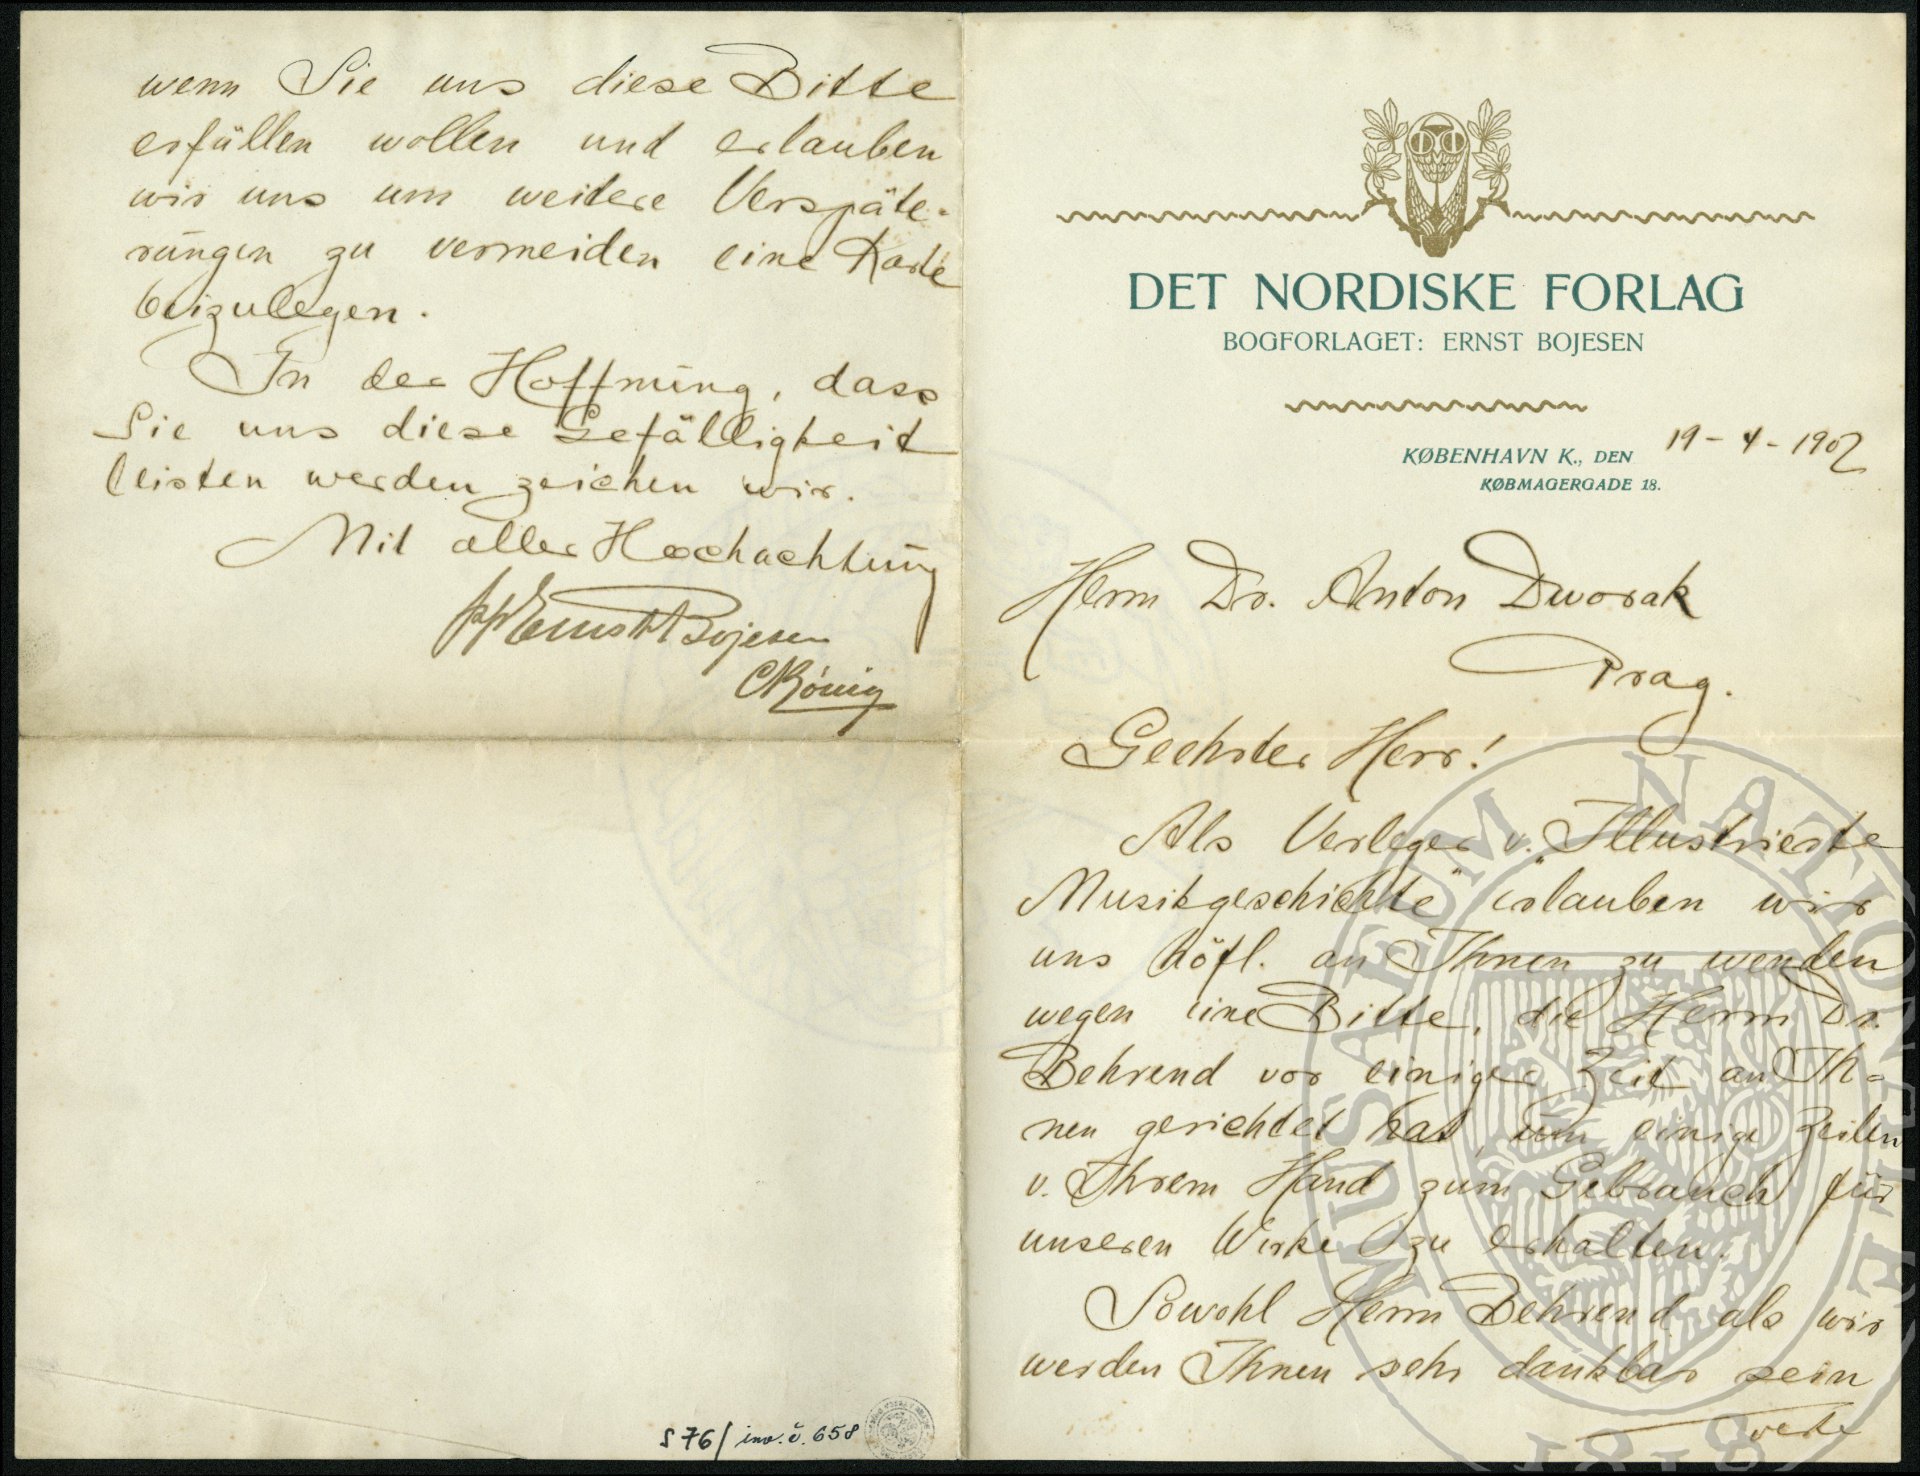 DET NORDISKE FORLAG
BOGFORLAGET: ERNST BOJESEN
KØBENHAVN K., DEN 19-4-1902
KØBMAGERGADE 18.
Herrn Dr. Anton Dworak
Prag.
Geehrter Herr!
Als Verleger v. „Illustrierte
Musikgeschichte" erlauben wir
uns höfl. an Ihnen zu wenden
wegen eine Bitte, die Herrn Dr.
Behrend vor einiger Zeit an Ih-
nen gerichtet hat, um einige Zeilen
v. Ihrem Hand zum Gebrauch für
unseren Wirke zu erhalten.
Sowohl Herrn Behrend als wir
werden Ihnen sehr dankbar sein
wenn Sie uns diese Bitte
erfüllen wollen und erlauben
wir uns um weitere Verspäte-
rungen zu vermeiden eine Karte
beizulegen.
In der Hoffnung, dass
Sie uns diese Gefälligkeit
leisten werden zeichen wir.
Mit aller Hochachtung
pp Ernst Bojesen
C König
S 76/ inv. č. 658
MUSAEUM NATIONALE
1818